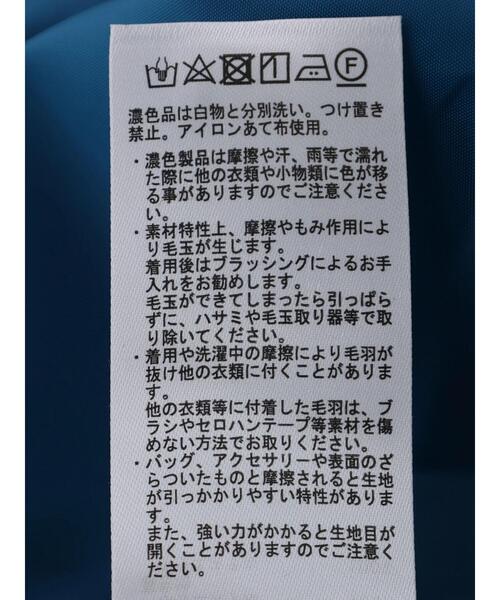 濃色品は白物と分別洗い。つけ置き
禁止。アイロンあて布使用。
・濃色製品は摩擦や汗、雨等で濡れ
た際に他の衣類や小物類に色が移
る事がありますのでご注意くださ
い。
・素材特性上、摩擦やもみ作用によ
り毛玉が生じます。
着用後はブラッシングによるお手
入れをお勧めします。
毛玉ができてしまったら引っぱら
ずに、ハサミや毛玉取り器等で取
り除いてください。
・着用や洗濯中の摩擦により毛羽が
抜け他の衣類に付くことがありま
す。
他の衣類等に付着した毛羽は、ブ
ラシやセロハンテープ等素材を傷
めない方法でお取りください。
・バッグ、アクセサリーや表面のざ
らついたものと摩擦されると生地
が引っかかりやすい特性がありま
す。
また、強い力がかかると生地目が
開くことがありますのでご注意く
ださい。